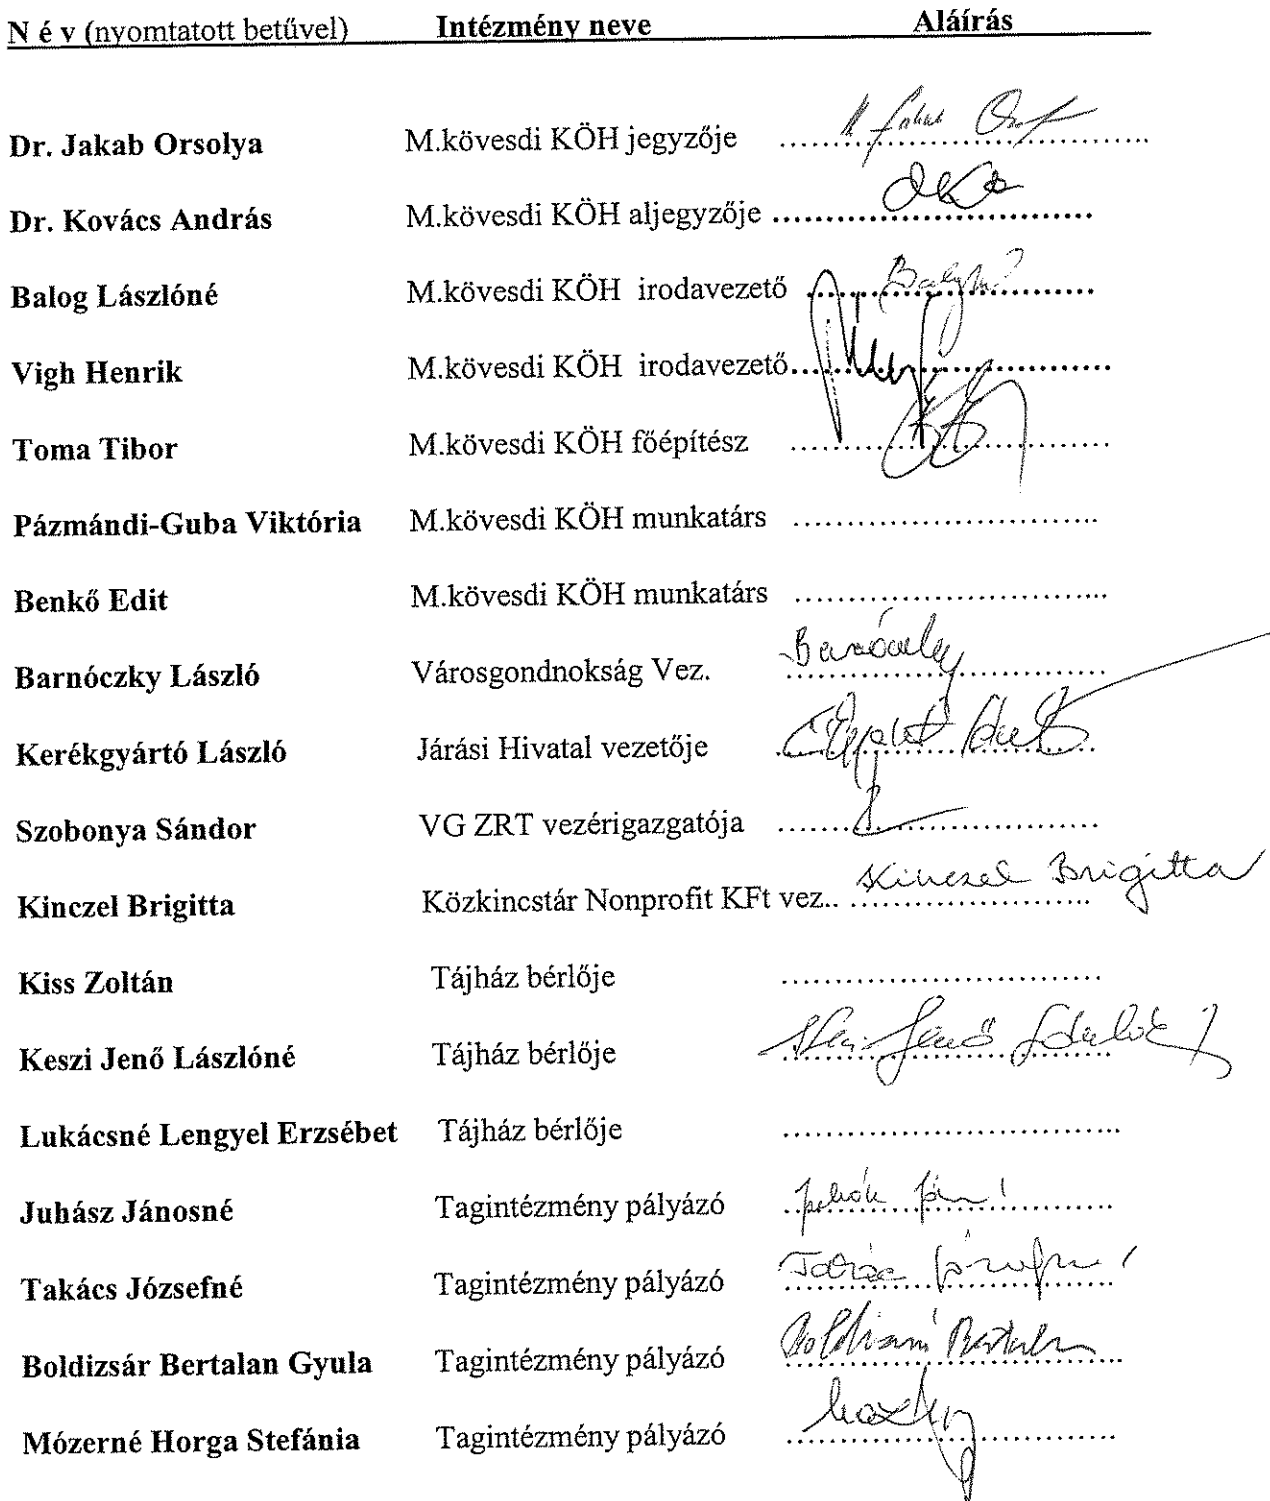 N é v (nyomtatott betűvel) Intézmény neve Aláírás
Dr. Jakab Orsolya M.kövesdi KÖH jegyzője ....................................
Dr. Kovács András M.kövesdi KÖH aljegyzője ..............................
Balog Lászlóné M.kövesdi KÖH irodavezető ...........................
Vigh Henrik M.kövesdi KÖH irodavezető..............................
Toma Tibor M.kövesdi KÖH főépítész ..............................
Pázmándi-Guba Viktória M.kövesdi KÖH munkatárs ..............................
Benkő Edit M.kövesdi KÖH munkatárs ..............................
Barnóczky László Városgondnokság Vez. ..............................
Kerékgyártó László Járási Hivatal vezetője ..............................
Szobonya Sándor VG ZRT vezérigazgatója ..............................
Kinczel Brigitta Közkincstár Nonprofit KFt vez.. Kinczel Brigitta
Kiss Zoltán Tájház bérlője ..............................
Keszi Jenő Lászlóné Tájház bérlője ..............................
Lukácsné Lengyel Erzsébet Tájház bérlője ..............................
Juhász Jánosné Tagintézmény pályázó ..............................
Takács Józsefné Tagintézmény pályázó ..............................
Boldizsár Bertalan Gyula Tagintézmény pályázó ..............................
Mózerné Horga Stefánia Tagintézmény pályázó ..............................